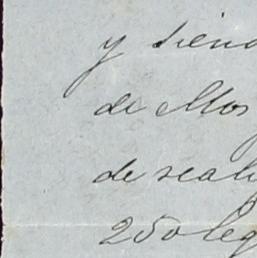 y siend
de Mos
de seal
250 leg